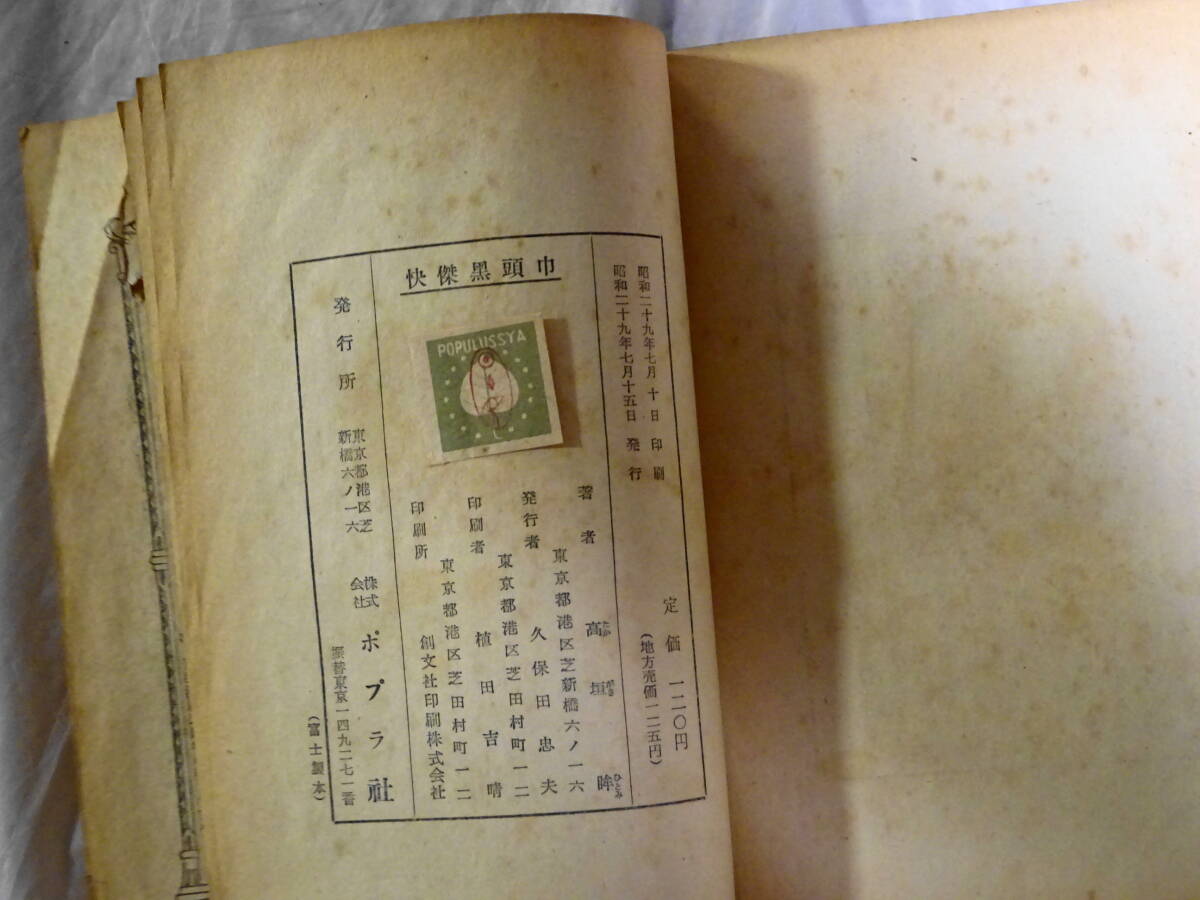 快傑黒頭巾
POPULUSSYA
昭和二十九年七月 十 日 印刷
昭和二十九年七月十五日 発行
定価 一二〇円
(地方売価一二五円)
著者 高垣眸
たか がき ひとみ
東京都港区芝新橋六ノ一六
発行者 久保田忠夫
東京都港区芝田村町一二
印刷者 植田吉晴
東京都港区芝田村町一二
印刷所 創文社印刷株式会社
発行所
東京都港区芝
新橋六ノ一六
株式会社 ポプラ社
振替東京一四九二七一番
(富士製本)